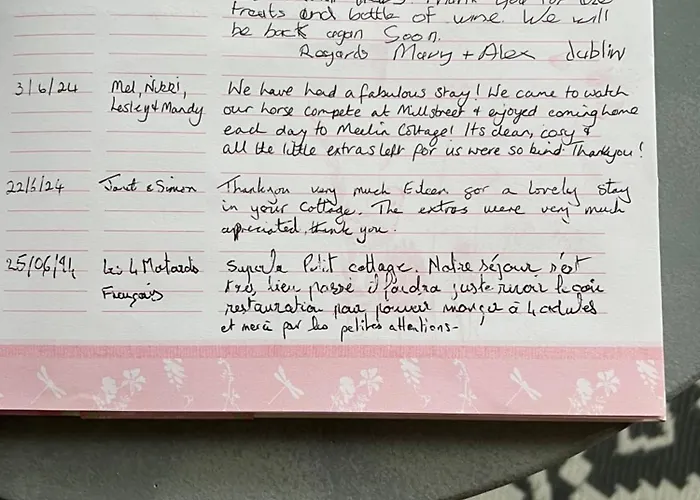 treats and bottle of wine. We will
be back again Soon.
Regards Mary + Alex Dublin
3/6/24 Mel, Nikki, We have had a fabulous stay! We came to watch
Lesley & Mandy our horse compete at Millstreet & enjoyed coming home
each day to Meelin Cottage! Its clean, cosy &
all the little extras left for us were so kind. Thankyou!
22/6/24 Janet & Simon Thankyou very much Eileen for a lovely stay
in your Cottage. The extras were very much
appreciated, thank you.
25/06/24 Les 4 Motards Superbe Petit cottage. Notre séjour s'est
Français très bien passé il faudra juste revoir le coin
restauration pour pouvoir manger à 4 adultes
et merci pour les petites attentions-